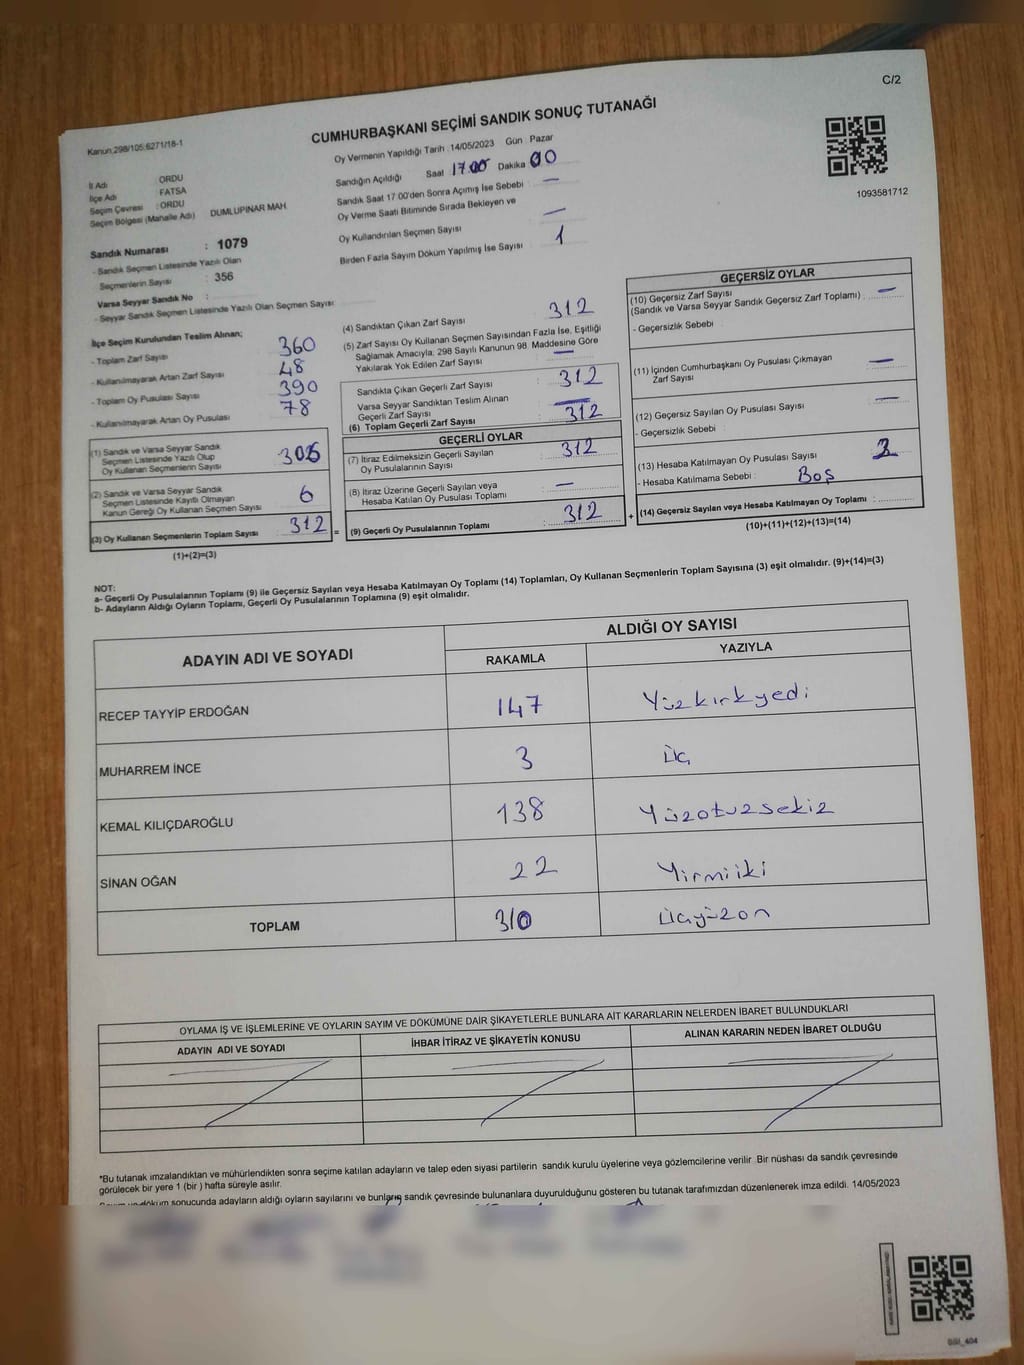 C/2
Kanun:298/105;6271/18-1
CUMHURBAŞKANI SEÇİMİ SANDIK SONUÇ TUTANAĞI
Oy Vermenin Yapıldığı Tarih :14/05/2023 Gün : Pazar
1093581712
İl Adı : ORDU
İlçe Adı : FATSA
Seçim Çevresi : ORDU
Seçim Bölgesi (Mahalle Adı) DUMLUPINAR MAH.
Sandık Numarası : 1079
- Sandık Seçmen Listesinde Yazılı Olan
Seçmenlerin Sayısı : 356
Varsa Seyyar Sandık No :
- Seyyar Sandık Seçmen Listesinde Yazılı Olan Seçmen Sayısı :
Sandığın Açıldığı Saat 17.00 Dakika 00
Sandık Saat 17.00'den Sonra Açılmış İse Sebebi : —
Oy Verme Saati Bitiminde Sırada Bekleyen ve
Oy Kullandırılan Seçmen Sayısı : —
Birden Fazla Sayım Döküm Yapılmış İse Sayısı : 1
İlçe Seçim Kurulundan Teslim Alınan;
- Toplam Zarf Sayısı : 360
- Kullanılmayarak Artan Zarf Sayısı : 48
- Toplam Oy Pusulası Sayısı : 390
- Kullanılmayarak Artan Oy Pusulası : 78
(1) Sandık ve Varsa Seyyar Sandık
Seçmen Listesinde Yazılı Olup
Oy Kullanan Seçmenlerin Sayısı : 306
(2) Sandık ve Varsa Seyyar Sandık
Seçmen Listesinde Kayıtlı Olmayan
Kanun Gereği Oy Kullanan Seçmen Sayısı : 6
(3) Oy Kullanan Seçmenlerin Toplam Sayısı : 312 =
(1)+(2)=(3)
(4) Sandıktan Çıkan Zarf Sayısı : 312
(5) Zarf Sayısı Oy Kullanan Seçmen Sayısından Fazla İse, Eşitliği
Sağlamak Amacıyla, 298 Sayılı Kanunun 98. Maddesine Göre
Yakılarak Yok Edilen Zarf Sayısı : —
Sandıkta Çıkan Geçerli Zarf Sayısı : 312
Varsa Seyyar Sandıktan Teslim Alınan
Geçerli Zarf Sayısı : —
(6) Toplam Geçerli Zarf Sayısı : 312
GEÇERLİ OYLAR
(7) İtiraz Edilmeksizin Geçerli Sayılan
Oy Pusulalarının Sayısı : 312
(8) İtiraz Üzerine Geçerli Sayılan veya
Hesaba Katılan Oy Pusulası Toplamı : —
(9) Geçerli Oy Pusulalarının Toplamı : 312 +
GEÇERSİZ OYLAR
(10) Geçersiz Zarf Sayısı : —
(Sandık ve Varsa Seyyar Sandık Geçersiz Zarf Toplamı)
- Geçersizlik Sebebi :
(11) İçinden Cumhurbaşkanı Oy Pusulası Çıkmayan
Zarf Sayısı : —
(12) Geçersiz Sayılan Oy Pusulası Sayısı : —
- Geçersizlik Sebebi :
(13) Hesaba Katılmayan Oy Pusulası Sayısı :
- Hesaba Katılmama Sebebi : Boş
(14) Geçersiz Sayılan veya Hesaba Katılmayan Oy Toplamı :
(10)+(11)+(12)+(13)=(14)
NOT:
a- Geçerli Oy Pusulalarının Toplamı (9) ile Geçersiz Sayılan veya Hesaba Katılmayan Oy Toplamı (14) Toplamları, Oy Kullanan Seçmenlerin Toplam Sayısına (3) eşit olmalıdır. (9)+(14)=(3)
b- Adayların Aldığı Oyların Toplamı, Geçerli Oy Pusulalarının Toplamına (9) eşit olmalıdır.
ADAYIN ADI VE SOYADI
ALDIĞI OY SAYISI
RAKAMLA YAZIYLA
RECEP TAYYİP ERDOĞAN 147 Yüzkırkyedi
MUHARREM İNCE 3 Üç
KEMAL KILIÇDAROĞLU 138 Yüzotuzsekiz
SİNAN OĞAN 22 Yirmiiki
TOPLAM 310 Üçyüzon
OYLAMA İŞ VE İŞLEMLERİNE VE OYLARIN SAYIM VE DÖKÜMÜNE DAİR ŞİKAYETLERLE BUNLARA AİT KARARLARIN NELERDEN İBARET BULUNDUKLARI
ADAYIN ADI VE SOYADI İHBAR İTİRAZ VE ŞİKAYETİN KONUSU ALINAN KARARIN NEDEN İBARET OLDUĞU
*Bu tutanak imzalandıktan ve mühürlendikten sonra seçime katılan adayların ve talep eden siyasi partilerin sandık kurulu üyelerine veya gözlemcilerine verilir. Bir nüshası da sandık çevresinde
görülecek bir yere 1 (bir ) hafta süreyle asılır.
Sayım ve döküm sonucunda adayların aldığı oyların sayılarını ve bunların sandık çevresinde bulunanlara duyurulduğunu gösteren bu tutanak tarafımızdan düzenlenerek imza edildi. 14/05/2023